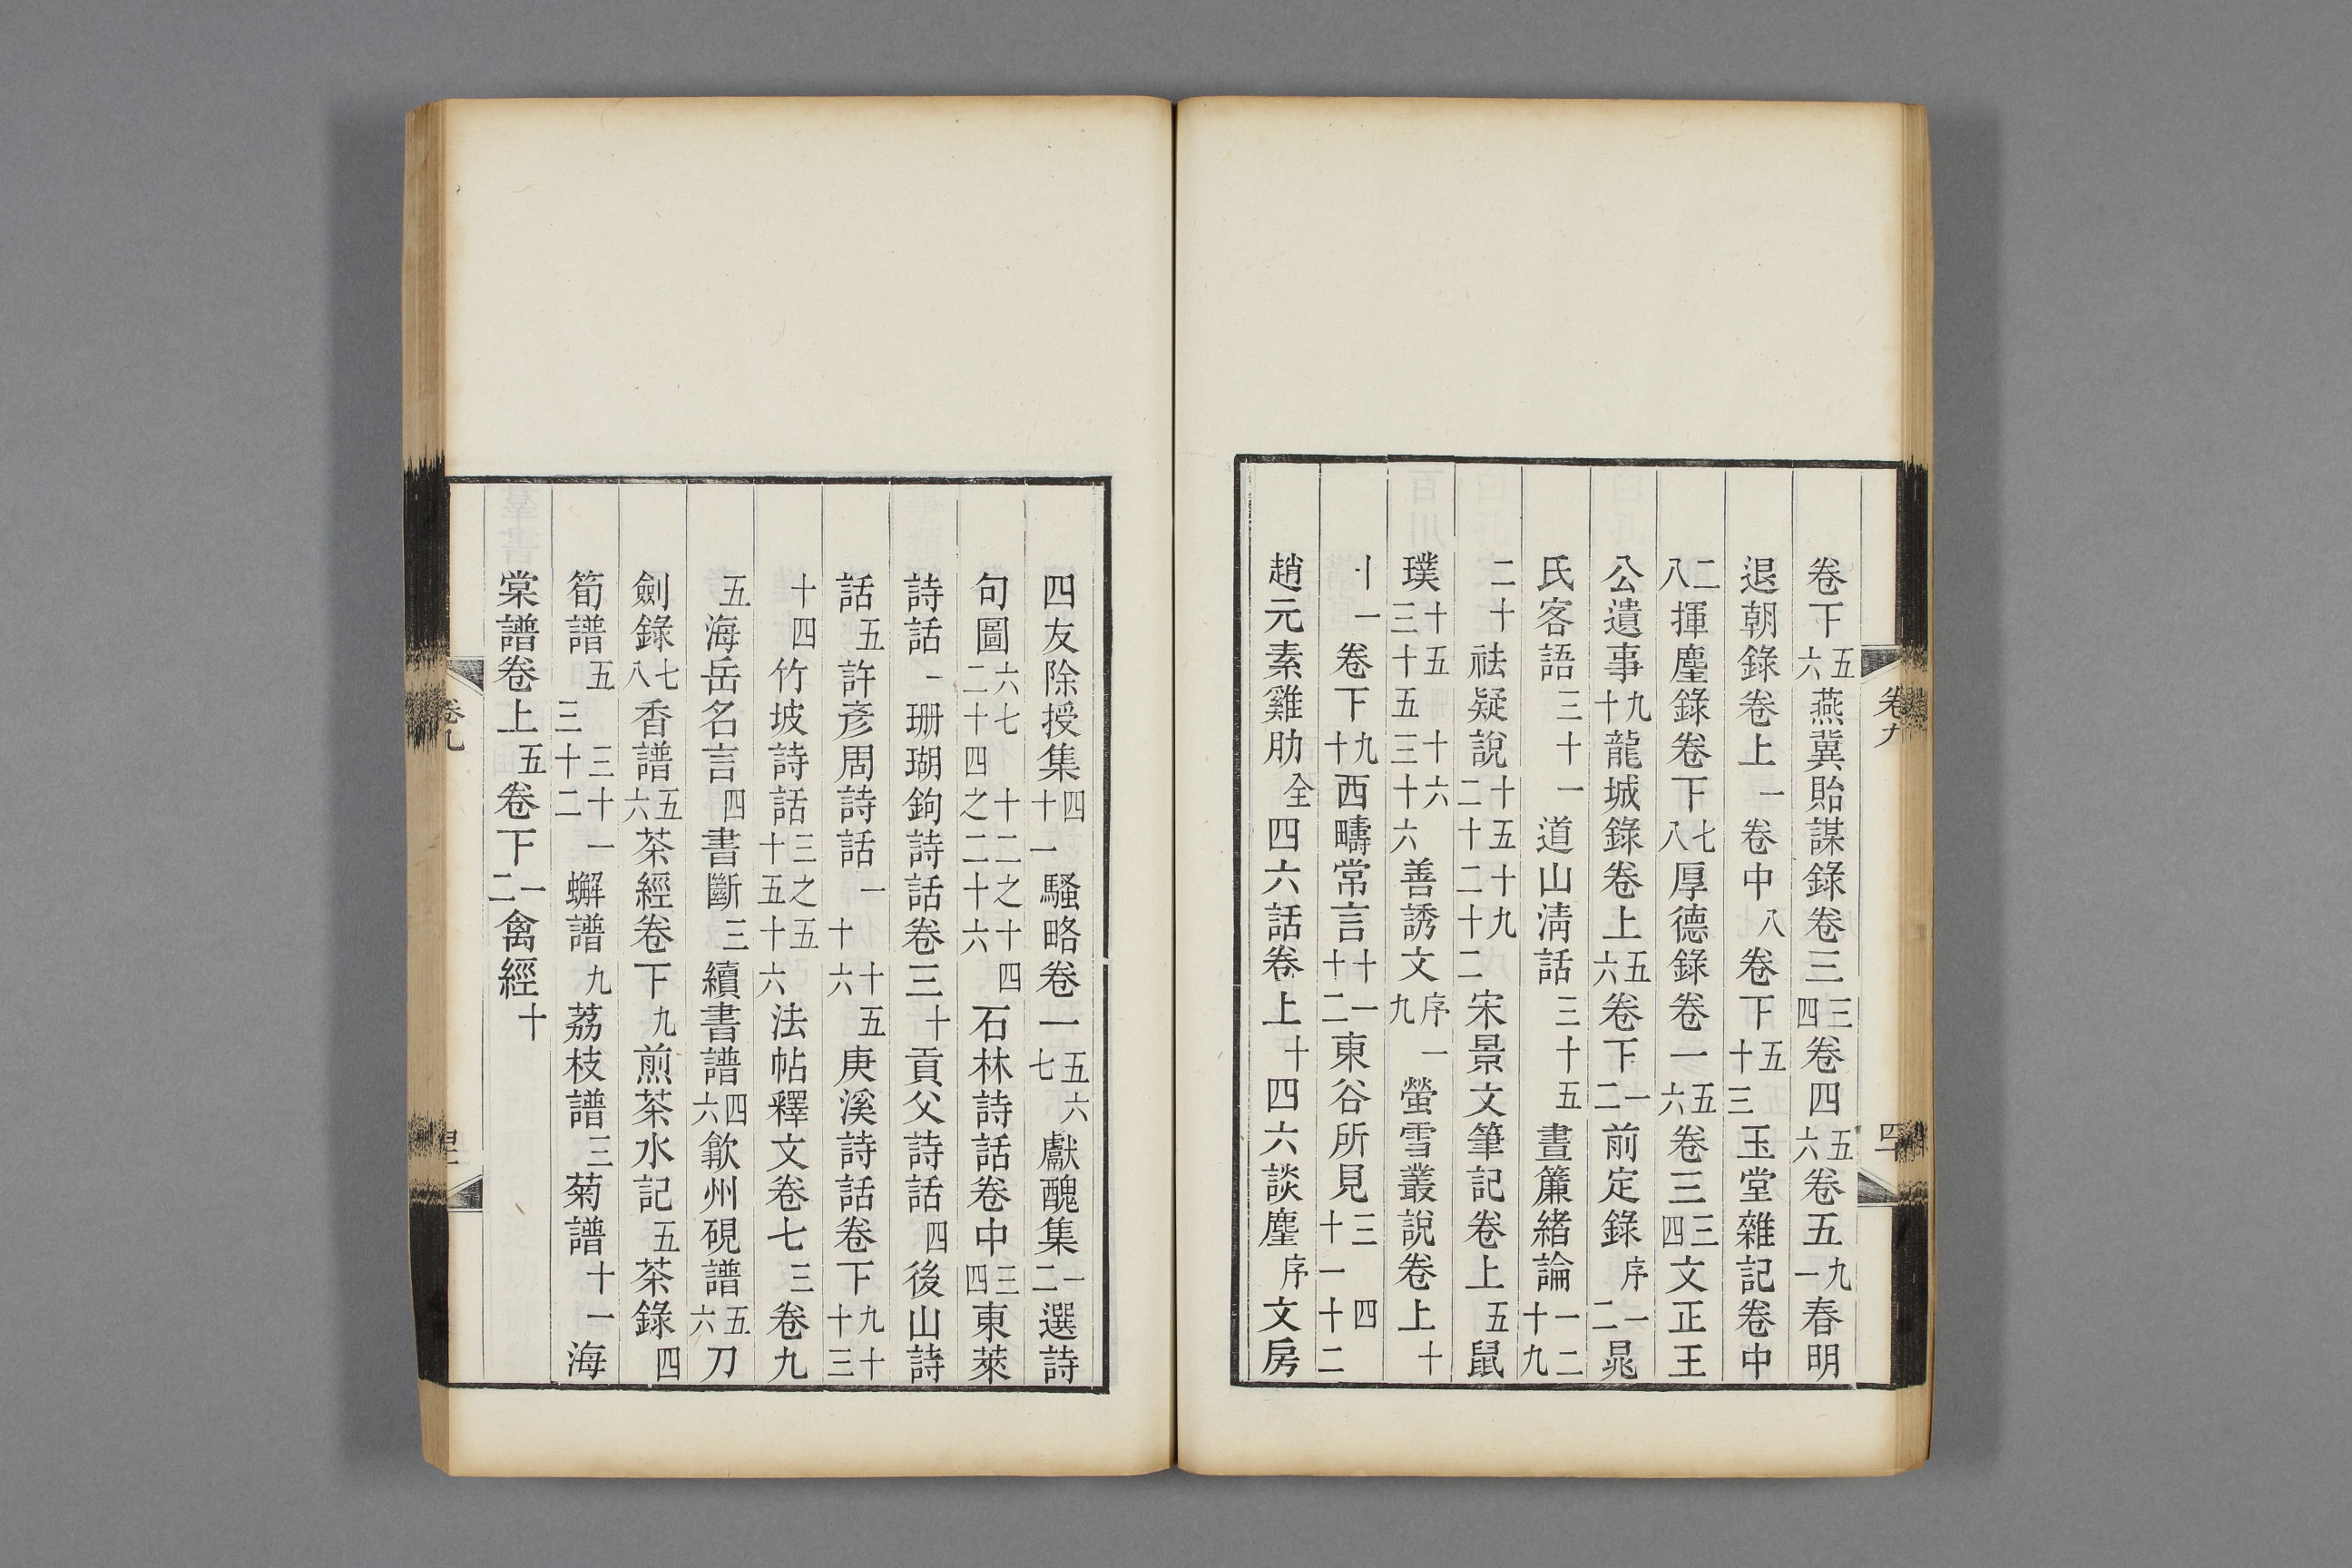 卷下五六燕冀貽謀錄卷三三四卷四五六卷五九一春明
退朝錄卷上一卷中八卷下五十三玉堂雜記卷中
二八揮麈錄卷下七八厚德錄卷一五六卷三三四文正王
公遺事九十龍城錄卷上五六卷下一二前定錄序一二晁
氏客語三十一道山淸話三十五晝簾緒論一二十九
二十祛疑說十五十九二十二十二宋景文筆記卷上五鼠
璞十五十六三十五三十六善誘文序一九螢雪叢說卷上十
十一卷下九十西疇常言十一十二東谷所見三四十一十二
趙元素雞肋全四六話卷上十四六談麈序文房
卷九
四十
四友除授集四十一騷略卷一五六七獻醜集一二選詩
句圖六七十二之十四二十四之二十六石林詩話卷中三四東萊
詩話一珊瑚鉤詩話卷三十貢父詩話四後山詩
話五許彥周詩話一十五十六庚溪詩話卷下九十十三
十四竹坡詩話三之五十五十六法帖釋文卷七三卷九
五海岳名言四書斷三續書譜四六歙州硯譜五六刀
劍錄七八香譜五六茶經卷下九煎茶水記五茶錄四
筍譜五三十一三十二蠏譜九荔枝譜三菊譜十一海
棠譜卷上五卷下一二禽經十
卷九